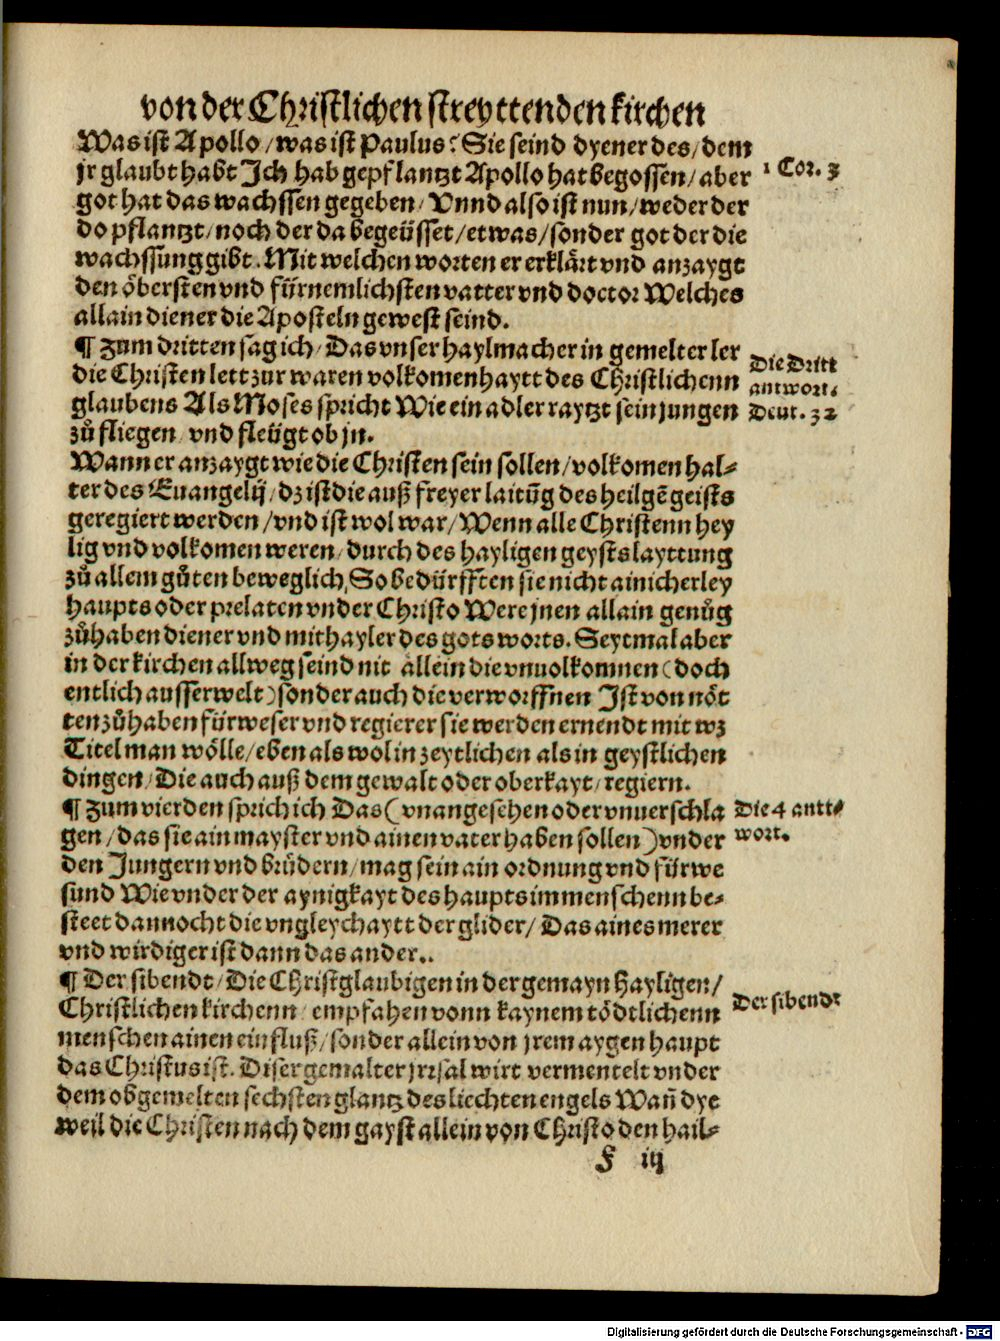 von der Christlichen streyttenden kirchen
Was ist Apollo / was ist Paulus? Sie seind dyener des / dem
jr glaubt habt Ich hab gepflantzt Apollo hat begossen / aber
1 Cor. 3
got hat das wachssen gegeben / Vnnd also ist nun / weder der
do pflantzt / noch der da begeüsset / etwas / sonder got der die
wachssung gibt. Mit welchen worten er erklärt vnd anzaygt
den öbersten vnd fürnemlichsten vatter vnd doctor Welches
allain diener die Aposteln gewest seind.
¶ Zum dritten sag ich / Das vnser haylmacher in gemelter ler
Die Dritt
die Christen lett zur waren volkomenhaytt des Christlichenn
antwort.
glaubens Als Moses spricht Wie ein adler raytzt sein jungen
Deut. 32
zů fliegen / vnd fleügt ob jn.
Wann er anzaygt wie die Christen sein sollen / volkomen hal⸗
ter des Euangelij / dz ist die auß freyer laitūg des heilgē geists
geregiert werden / vnd ist wol war / Wenn alle Christenn hey
lig vnd volkomen weren / durch des hayligen geysts layttung
zů allem gůten beweglich / So bedürfften sie nicht ainicherley
haupts oder prelaten vnder Christo Were jnen allain genůg
zůhaben diener vnd mithayler des gots worts. Seytmal aber
in der kirchen allweg seind nit allein die vnuolkomnen ( doch
entlich ausserwelt ) sonder auch die verworffnen Ist von nöt
ten zůhaben fürweser vnd regierer sie werden ernendt mit wz
Titel man wölle / eben als wol in zeytlichen als in geystlichen
dingen / Die auch auß dem gewalt oder oberkayt / regiern.
¶ Zum vierden sprich ich Das ( vnangesehen oder vnuerschla
Die 4 antt⸗
gen / das sie ain mayster vnd ainen vater haben sollen ) vnder
wort.
den Jungern vnd brüdern / mag sein ain ordnung vnd fürwe
sund Wie vnder der aynigkayt des haupts im menschenn be⸗
steet dannocht die vngleychaytt der glider / Das aines merer
vnd wirdiger ist dann das ander..
¶ Der sibendt / Die Christglaubigen in der gemayn Hayligen /
Der sibendt
Christlichen kirchenn / empfahen vonn kaynem tödtlichenn
menschen ainen einfluß / sonder allein von jrem aygen haupt
das Christus ist. Diser gemalter jrrsal wirt vermentelt vnder
dem obgemelten sechsten glantz des liechten engels Wañ dye
weil die Christen nach dem gayst allein von Christo den hail⸗
F iij
Digitalisierung gefördert durch die Deutsche Forschungsgemeinschaft - DFG